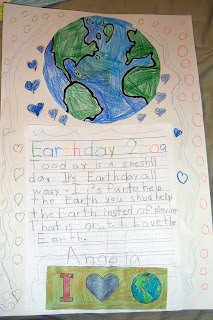 Earthday 2009
Today is a speshll
day. It's Earthday all
wasy. It's fun to help
the Earth. You shod help
the Earth insted of
That is grat. I Love the
Earth.
Angela
I